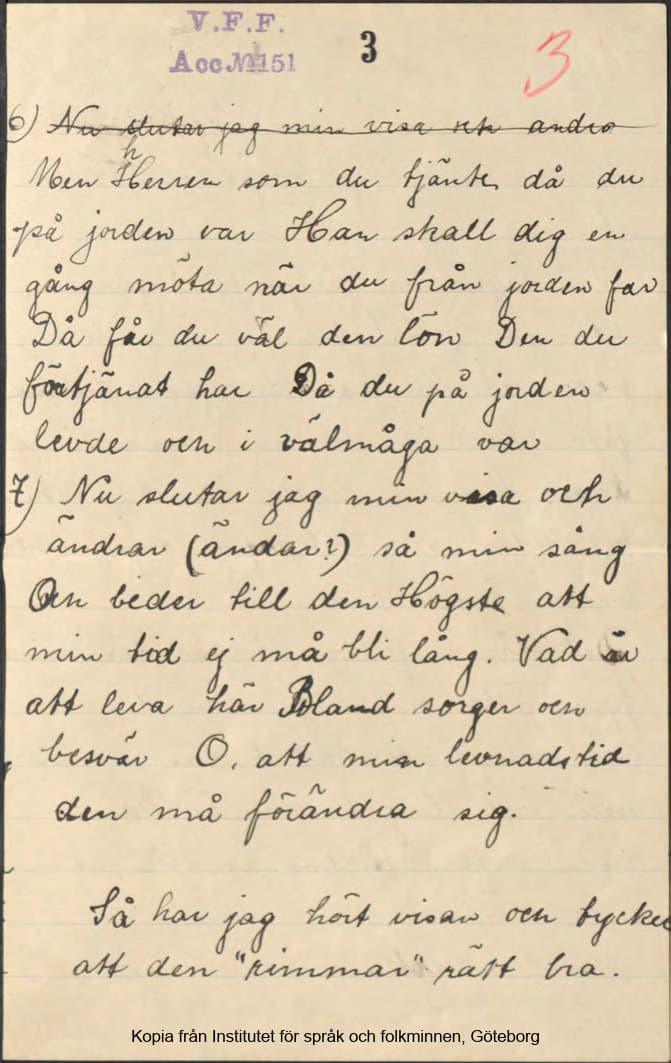 V.F.F.
Acc № 151
3
3
6) Nu slutar jag min visa och andra
Men Herren som du tjänte, då du
på jorden var Han skall dig en
gång möta när du från jorden far
Då får du väl den lön Den du
förtjänat har Då du på jorden
levde och i välmåga var
7) Nu slutar jag min visa och
ändrar (ändar?) så min sång
Och beder till den Högste att
min tid ej må bli lång. Vad är
att leva här Bland sorger och
besvär O, att min levnadstid
den må förändra sig.
Så har jag hört visan och tycker
att den "rimmar" rätt bra.
Kopia från Institutet för språk och folkminnen, Göteborg